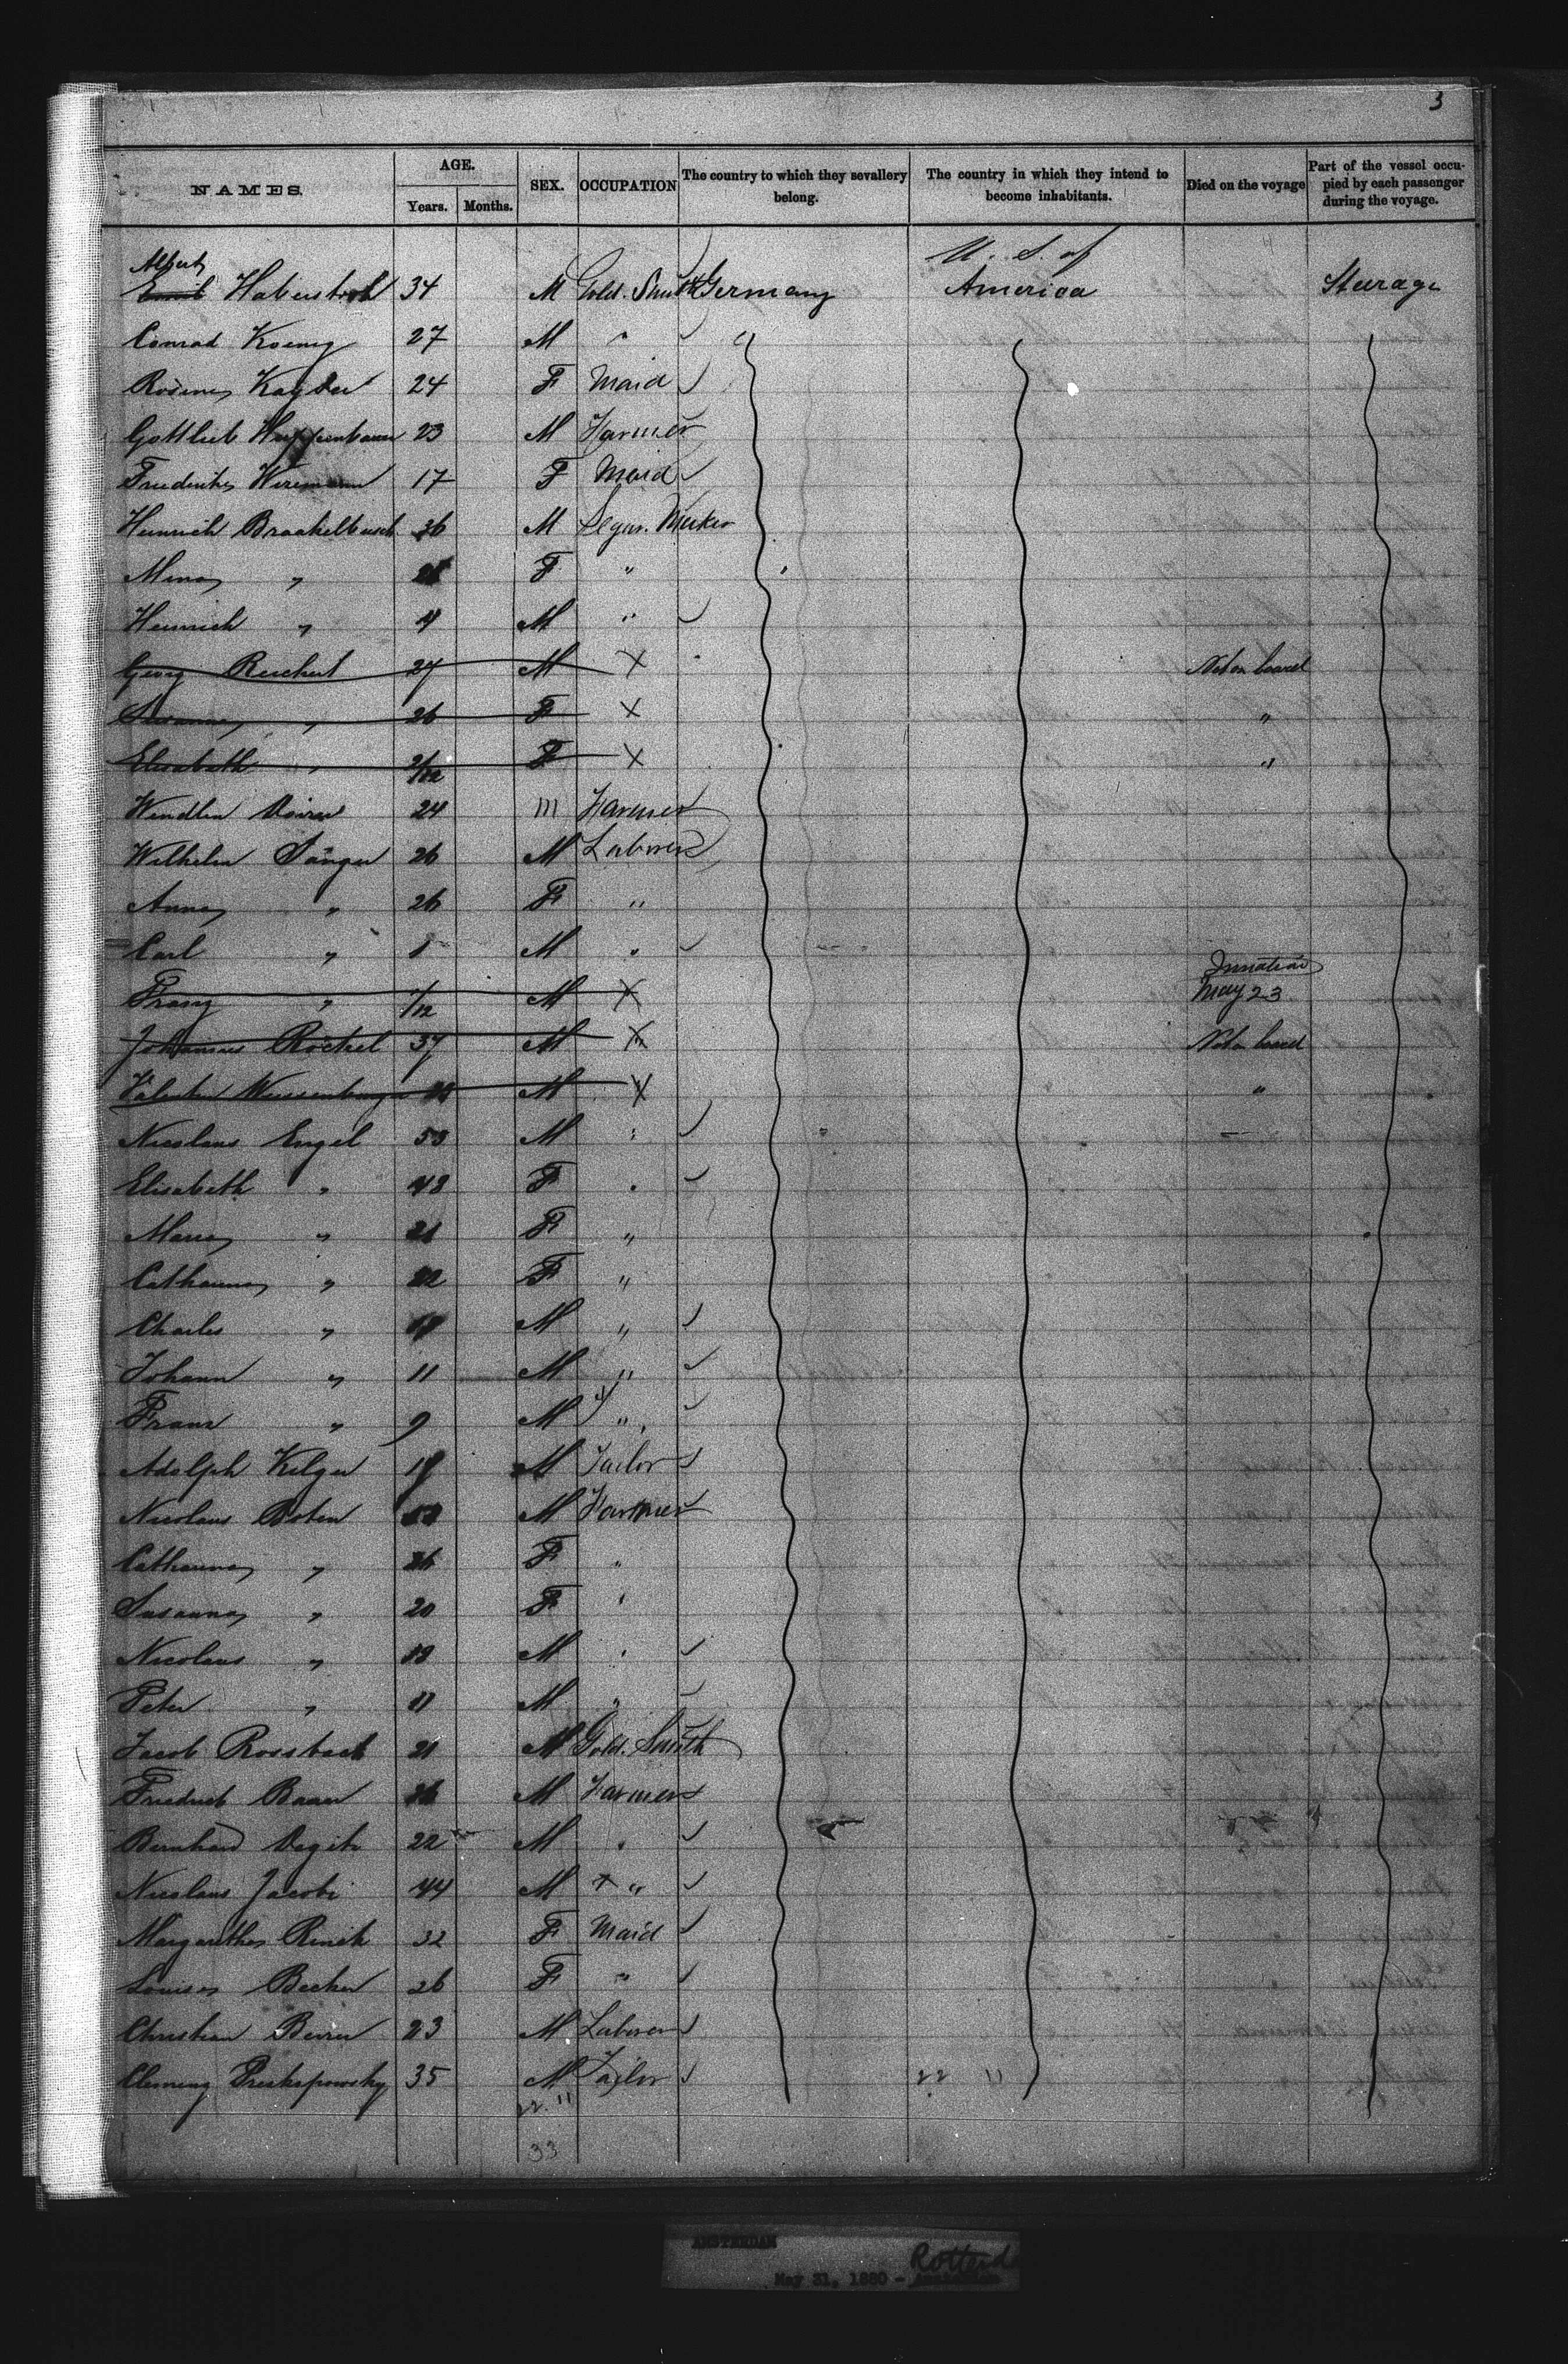 3
NAMES. AGE. Years. Months. SEX. OCCUPATION The country to which they sevallery belong. The country in which they intend to become inhabitants. Died on the voyage Part of the vessel occupied by each passenger during the voyage.
Albert
Emil Haberstroh 34 M Gold. Smith Germany U. S. of America Steerage
Conrad Koenig 27 M "
24 F Maid
Gottlieb 23 M Farmer
17 F Maid
Heinrich Braakelbusch 36 M Segar. Maker
Mina " F "
Heinrich " 4 M "
Georg Reichert 27 M X Not on board
Susanna " 26 F X "
Elisabeth " 2/12 F X "
Wendlin 24 M Farmer
Wilhelm Sänger 26 M Laborer
Anna " 26 F "
Carl " 1 M "
Franz " /12 M X May 23
Johannes Röckel 37 M X Not on board
Valentin Weissenburger M X "
Nicolaus Engel 53 M "
Elisabeth " 48 F "
Maria " 21 F "
Catharina " 22 F "
Charles " M "
Johann " 11 M "
Franz " 9 M "
Adolph Kilger M Tailor
Nicolaus Boten M Farmer
Catharina " 26 F "
Susanna " 20 F "
Nicolaus " 18 M "
Peter " 11 M "
Jacob Rossbach 21 M Gold. Smith
Friedrich Bauer 26 M Farmer
Bernhard 22 M "
Nicolaus Jacobi 44 M + "
Margaretha 32 F Maid
Louisa Becker 26 F "
Christian 23 M Laborer
35 M Taylor
22 11
22. 11
33
AMSTERDAM
Rotterd
May 31, 1880 -